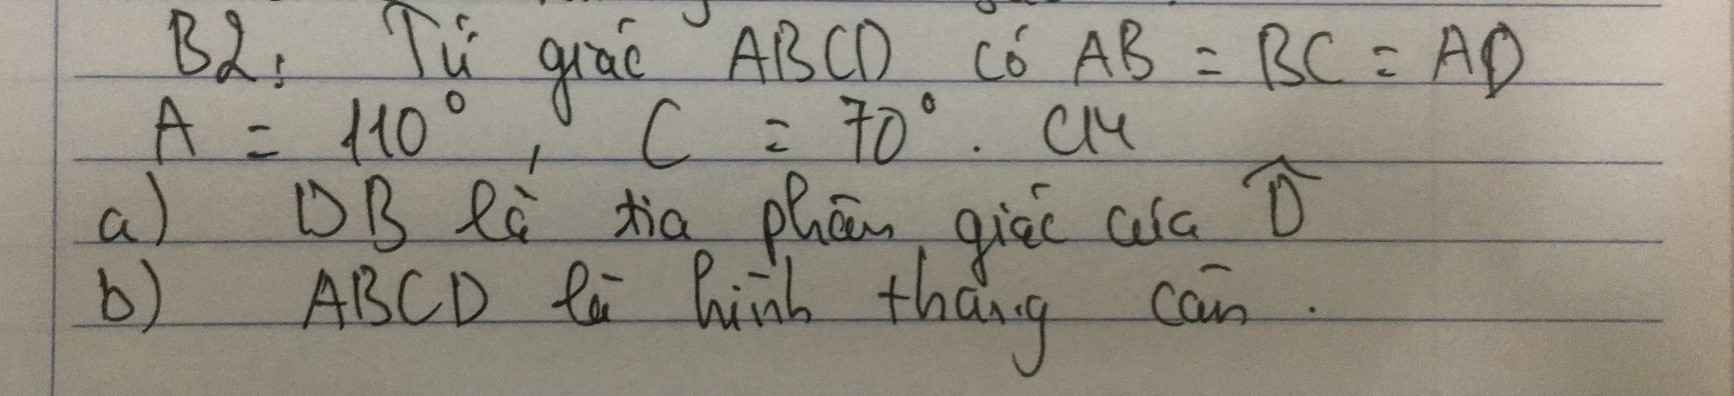 B2: Tứ giác ABCD có AB = BC = AD
A = 110°, C = 70°. CM
a) DB là tia phân giác của D̂
b) ABCD là hình thang cân.